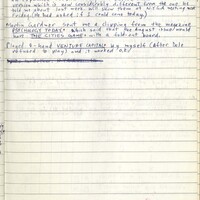 version which is now considerably different from the one he
told me about last week. Will show them at his next meeting next
Friday (he had asked if I could come today)
Martin Gardner sent me a clipping from the magazine
PSYCHOLOGY TODAY which said that the August issue would
have THE CITIES GAME with a fold-out board.
Played 4-hand VENTURE (solo) by myself (after Sale
refused to play) and it worked O.K.